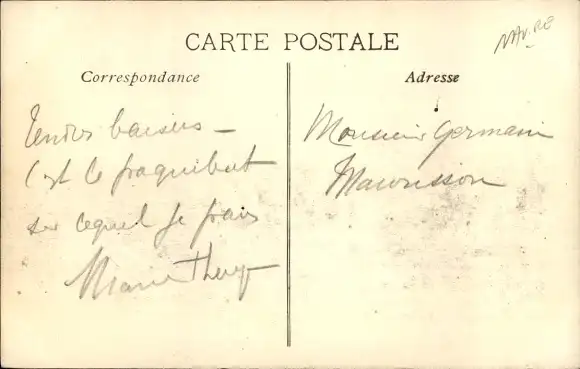 NAVIRE
CARTE POSTALE
Correspondance
Adresse
Tendres baisers –
C'est le paquebot
sur lequel je
Marie Thérèse
Monsieur Germain